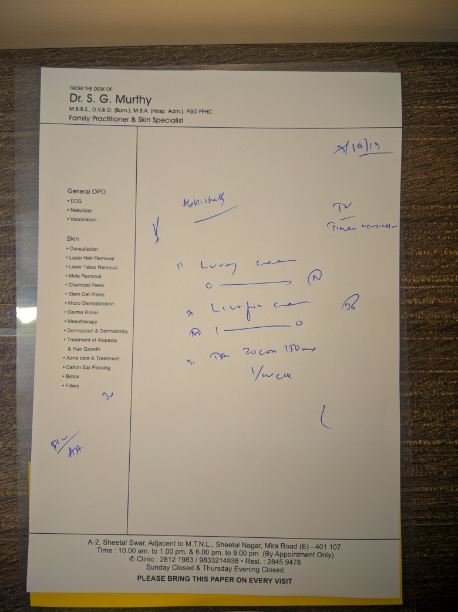 FROM THE DESK OF
Dr. S. G. Murthy
M.B.B.S., D.V.& D. (Bom.), M.B.A. (Hosp. Adm.), PGD PPHC
Family Practitioner & Skin Specialist
TV
General OPD
• ECG
• Nebulizer
• Vaccination
Skin
• Consultation
• Laser Hair Removal
• Laser Tattoo Removal
• Mole Removal
• Chemical Peels
• Stem Cell Peels
• Micro Dermabrasion
• Derma Roller
• Mesotherapy
• Dermoscan & Dermoscopy
• Treatment of Alopecia
& Hair Growth
• Acne care & Treatment
• Cation Ear Piercing
• Botox
• Fillers
cream
0 N
cream
1 0
1/week
A-2, Sheetal Swar, Adjacent to M.T.N.L., Sheetal Nagar, Mira Road (E) - 401 107
Time : 10.00 am. to 1.00 pm. & 6.00 pm. to 9.00 pm. (By Appointment Only)
Clinic : 2812 1983 / 9833214938 • Resi. : 2845 9478
Sunday Closed & Thursday Evening Closed
PLEASE BRING THIS PAPER ON EVERY VISIT